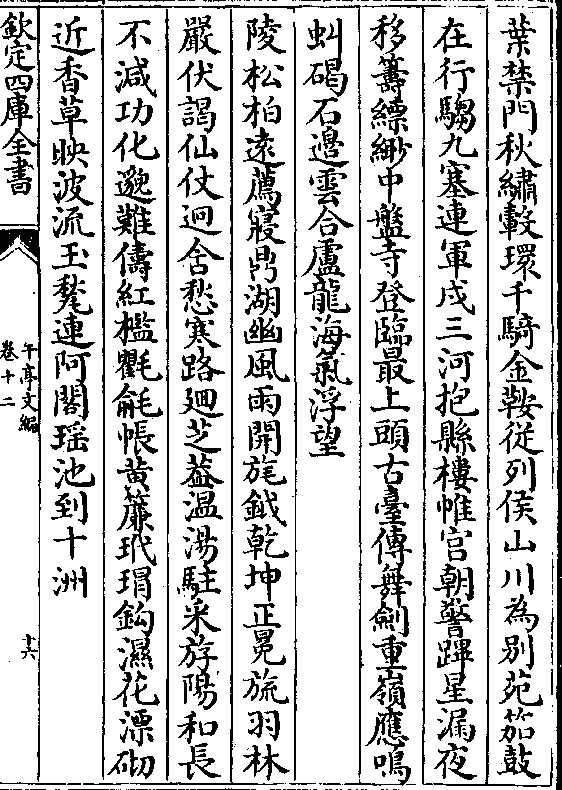 葉禁門秋繡轂環千騎金鞍従列侯山川為别苑笳鼓
在行騶九塞連軍戍三河抱縣樓帷宫朝警蹕星漏夜
移籌縹緲中盤寺登臨最上頭古臺傳舞劍重嶺應鳴
虯碣石邉雲合盧龍海氣浮望
陵松柏逺薦寢鼎湖幽風雨開旄鉞乾坤正冕旒羽林
嚴伏謁仙仗迥含愁寒路廻芝葢温湯駐釆斿陽和長
不減功化邈難儔紅檻氍毹帳黄簾玳瑁鈎濕花漂砌
近香草映波流玉甃連阿閣瑶池到十洲
欽定四庫全書
午亭文編
卷十二
十六